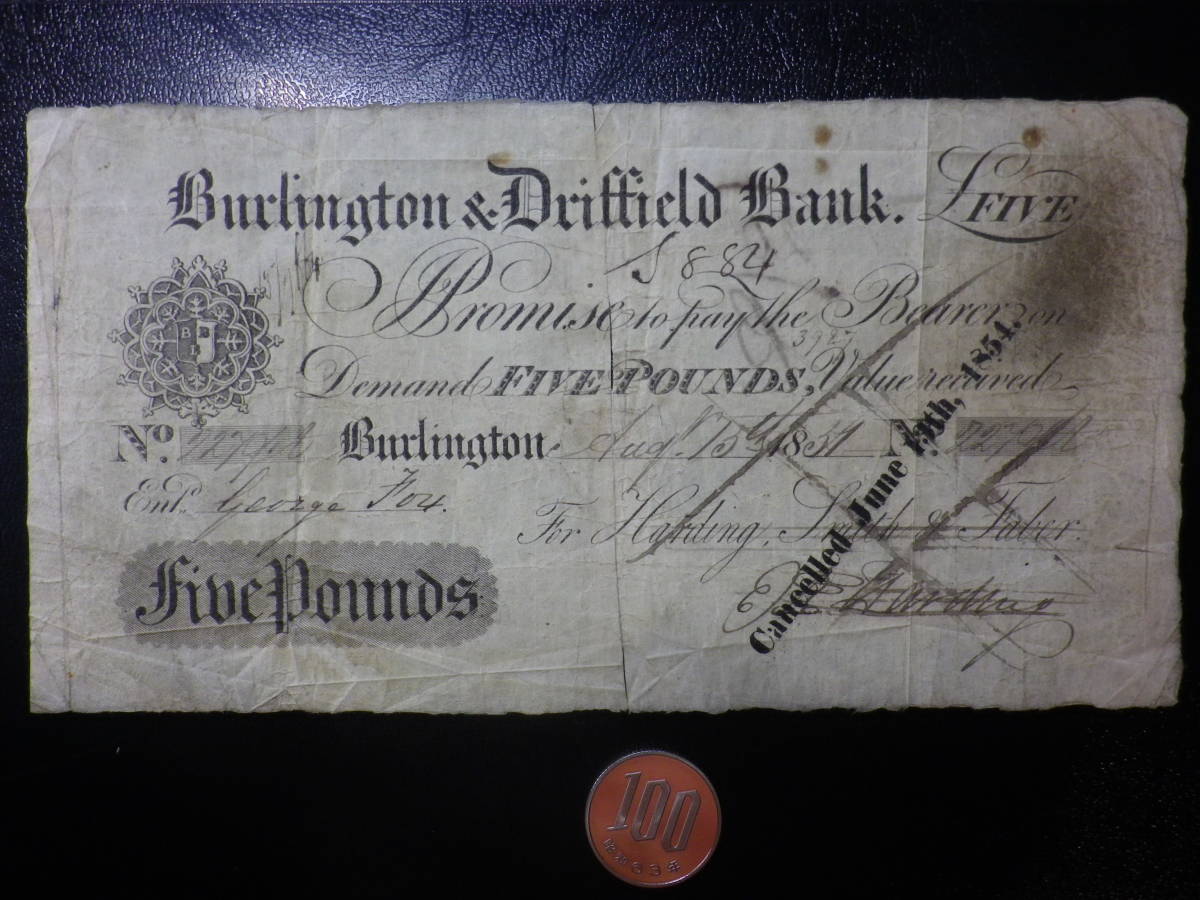 Burlington & Driffield Bank. £FIVE
S 884
I Promise to pay the Bearer on
Demand FIVE POUNDS, Value received
No. Burlington Aug. 18 No.
Entd. George Fox.
For Harding, Smith & Faber.
Five Pounds
Harding
Cancelled June 19th, 1854.
B
100
昭和33年